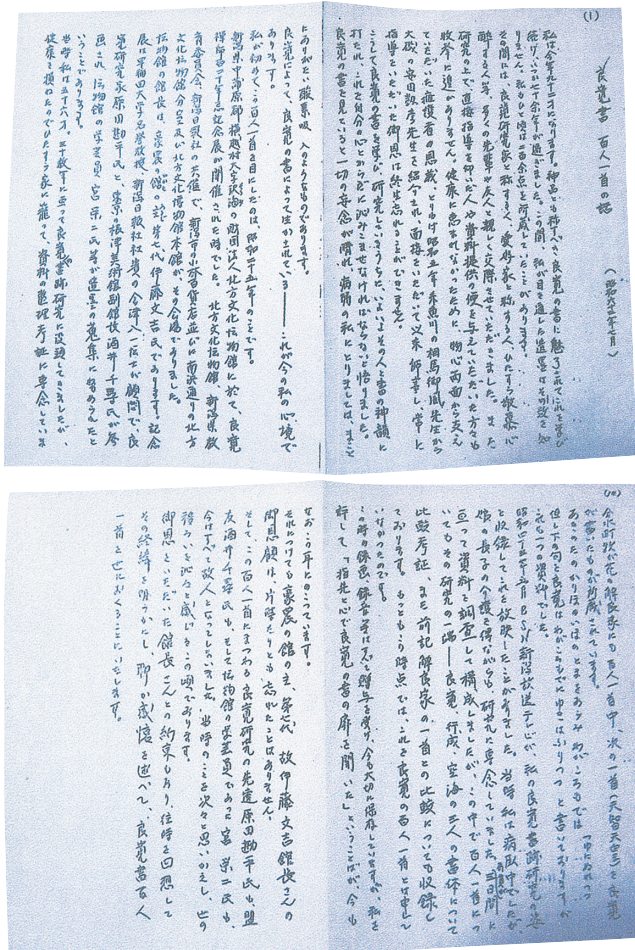 (1)
良寛書 百人一首の話
(昭和六十五年一月)
私は今年九十才になります。
続けいつしか七十余年が過ぎました。この間、私が目を通した遺墨はその数を知
りません。私もひと頃は二百余点を所蔵していたことがあります。
その間には、良寛研究家と称する人、愛好家と称する人、ひたすら敬慕心
酔する人等、多くの先輩や友人と親しく交際させていただきました。また
研究の上で直接指導を仰いだ人や資料提供の便を与えていただいた方々も
枚挙に遑がありません。健康に恵まれなかったために、物心両面から支え
ていただいた庇護者の恩義、とりわけ昭和五年、糸魚川の相馬御風先生から
大磯の安田靫彦先生を紹介され、面接をいただいて以来、師事し、常に
指導をいただいた御恩は終生忘れることができません。
こうして良寛の書を学び、研究しているうちに、いよいよその人書の神韻に
打たれ、これを自分の心とからだに沁みませなければならないと悟りました。
良寛の書を見ていると一切の妄念が晴れ、病弱の私にとりましては、まこと
にありがたい酸素吸入のようなものであります。
良寛によって、良寛の書によって生かされている――これが今の私の心境で
あります。
私が初めてこの百人一首を目にしたのは昭和三十五年のことです。
新潟県中蒲原郡横越村大字沢海の財団法人北方文化博物館に於て、良寛
禅師百三十年記念展が開催された時でした。北方文化博物館、新潟県教
育委員会、新潟日報社の共催で、新潟市の小林百貨店並びに南浜通りの北方
文化博物館分館及び北方文化博物館本館が、その会場でありました。
博物館の館長は、豪農の館の主、第七代 伊藤文吉氏であります。記念
展は早稲田大学名誉教授、新潟日報社社賓の會津八一博士が顧問で、良
寛研究家原田勘平氏と東京根津美術館副館長酒井千尋氏が参
画され、博物館の学芸員 宮栄二氏等が遺墨の蒐集に努めらんたと
いうことであります。
当時私は五十六才、三十数年に亘って良寛墨跡研究に没頭してきましたが
健康を損ねたのでひたすら家に籠って、資料の整理考証に専念していま
が書いたものが所蔵されています。
あきのたのかりほのいほのとまをあらみ わがころもでは つゆにぬれつつ
但し下の句を良寛はわがころもでにゆきはふりつつ と書いておりますが
これも一つの資料でした。
と収録してこれを放映したことがありました。当時 私は病臥中でしたが
娘の長子の介護を得ながらも研究に専念していました。三日間に
亘って資料を調査して構成しましたが、この中で百人一首につ
いてもその研究の一端――良寛、行成、空海の三人の書体について
比較考証、また前記解良家の一首との比較についても収録し
ております。もっともこの時点では、これを良寛の百人一首とは申して
いなかったのです。
この時の録画、録音等は凡て贈与を受け、今も大切に保存していますが、私を
評して「指先と心で良寛の書の扉を開いた」ということが、今も
なおこの耳にのこっています。
それにつけても豪農の館の主、第七代 故伊藤文吉館長さんの
御恩顧は、片時たりとも忘れたことはありません。
そして、この百人一首にまつわる良寛研究の先達原田勘平氏も、盟
友酒井千尋氏も、そして博物館の学芸員であった宮栄二氏も、
今はすべて故人となってしまいました。当時のことを次々と思いかえし、世の
移ろいを沁々と感じるこの頃であります。
御恩をいただいた館長さんとの約束もあり、往時を回想して
その経緯を明らかにし、聊か感懐を述べて、良寛書百人
一首を世におくることにいたします。